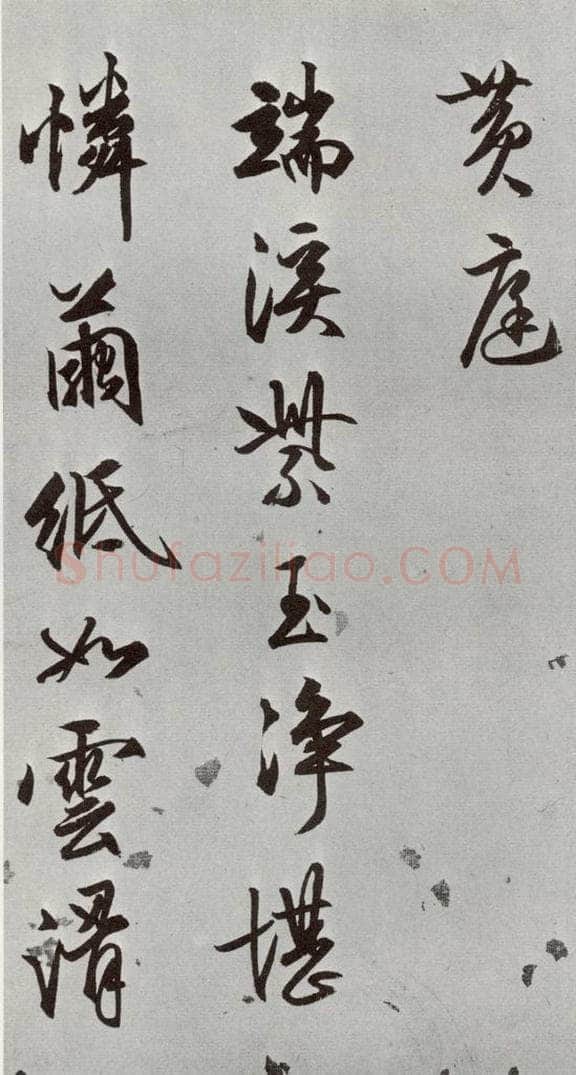 黄庭
端溪紫玉淨堪
憐繭紙如雲滑
Shufaziliao.COM